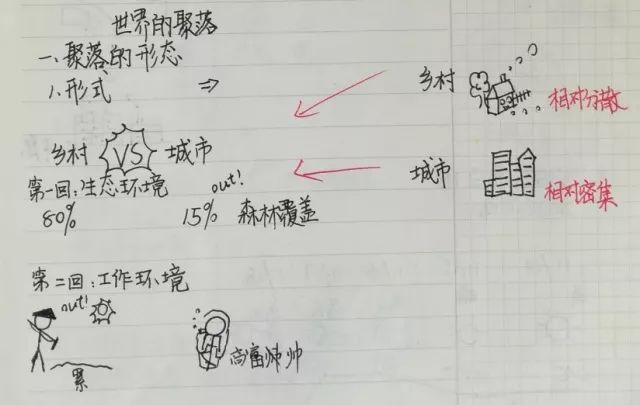 世界的聚落
一、聚落的形态
1.形式 ⇒
乡村 相对分散
乡村 VS 城市
城市 相对密集
第一回：生态环境
out!
80% 15% 森林覆盖
第二回：工作环境
out!
高富帅帅
累